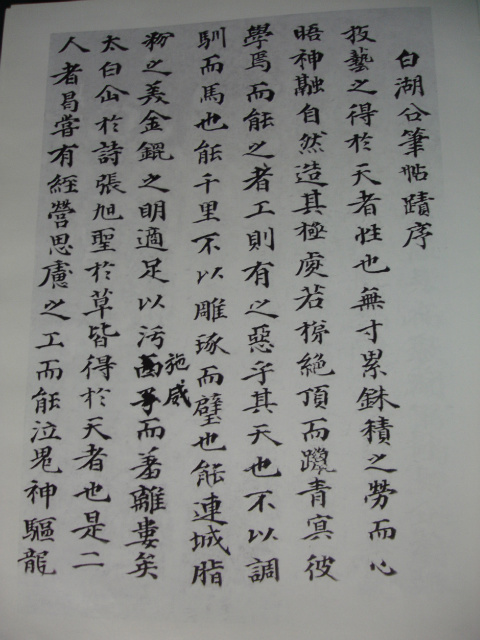 白湖公筆帖蹟序
技藝之得於天者性也無寸累銖積之勞而心
晤神融自然造其極處若梯絶頂而躡青冥彼
學焉而能之者工則有之惡乎其天也不以調
馴而馬也能千里不以雕琢而璧也能連城脂
施威
粉之美金錕之明適足以污西子而蕃離婁矣
太白仙於詩張旭聖於草皆得於天者也是二
人者曷嘗有經營思慮之工而能泣鬼神驅龍